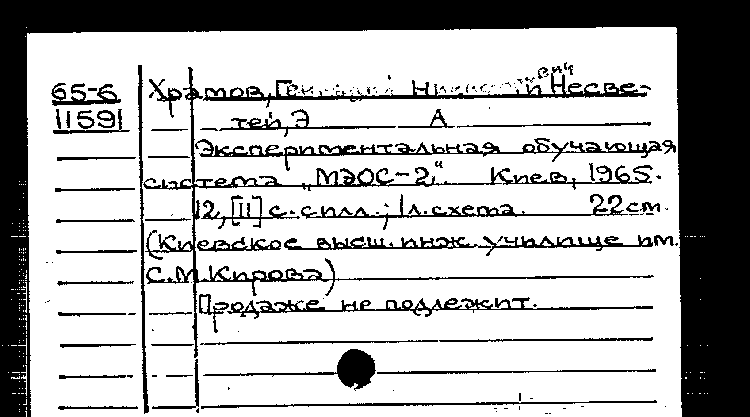 65-6 Храмов, Геннадий и Несве-
11591 тей, Э А
Экспериментальная обучающая
система „МЭОС-2“. Киев, 1965.
12, [11] с. с илл.; 1 л. схема. 22 см.
(Киевское высш. инж. училище им.
С.М. Кирова)
Продаже не подлежит.